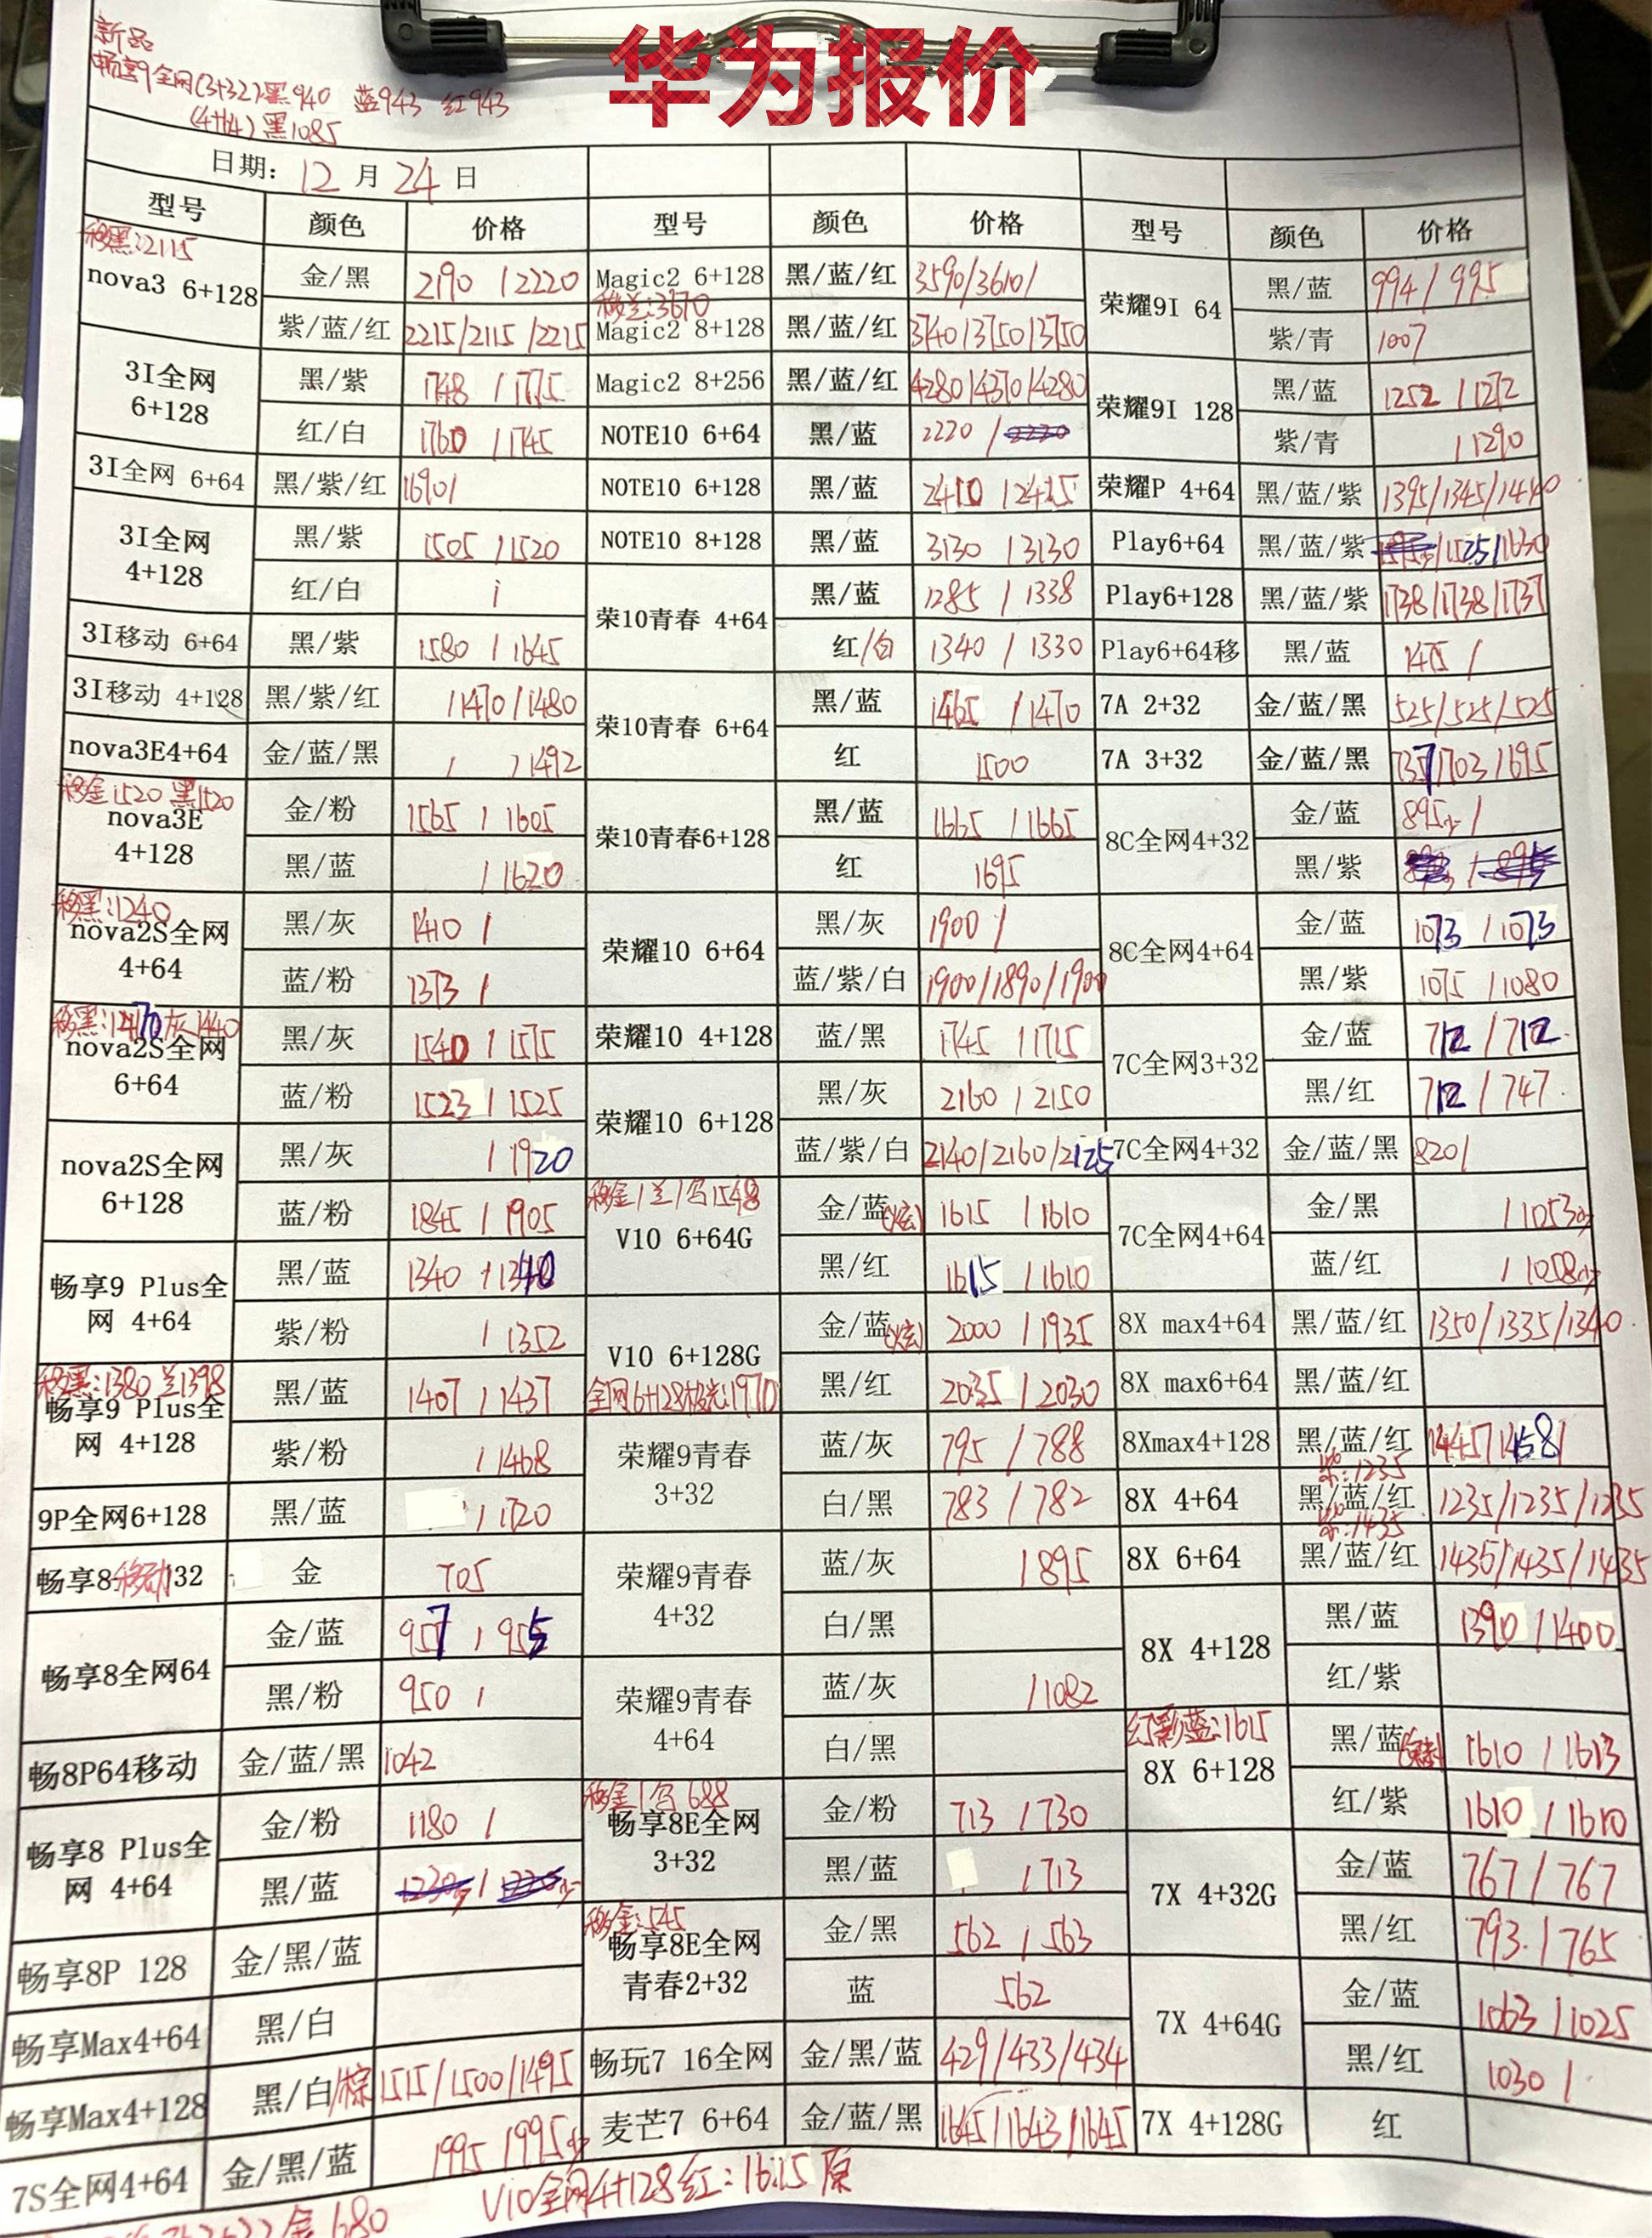 华为报价
新品
畅享9全网(3+32)黑940 蓝943 红943
(4+64)黑1085
日期: 12 月 24 日
型号 颜色 价格 型号 颜色 价格 型号 颜色 价格
移黑:2115
nova3 6+128 金/黑 2190 / 2220
紫/蓝/红 2215/2115/2215
3I全网 6+128 黑/紫 1748 / 1775
红/白 1760 / 1745
3I全网 6+64 黑/紫/红 1690/
3I全网 4+128 黑/紫 1505 / 1520
红/白 /
3I移动 6+64 黑/紫 1580 / 1645
3I移动 4+128 黑/紫/红 /1470/1480
nova3E4+64 金/蓝/黑 / /1492
移金1520 黑1520
nova3E 4+128 金/粉 1565 / 1605
黑/蓝 / 1620
移黑:1240
nova2S全网 4+64 黑/灰 1410 /
蓝/粉 1373 /
移黑:1470 灰1440
nova2S全网 6+64 黑/灰 1540 / 1575
蓝/粉 1523 / 1525
nova2S全网 6+128 黑/灰 / 1920
蓝/粉 1845 / 1905
畅享9 Plus全网 4+64 黑/蓝 1340 / 1340
紫/粉 / 1352
移黑:1380 兰1398
畅享9 Plus全网 4+128 黑/蓝 1407 / 1437
紫/粉 / 1468
9P全网6+128 黑/蓝 / 1720
畅享8移动32 金 705
畅享8全网64 金/蓝 957 / 955
黑/粉 950 /
畅8P64移动 金/蓝/黑 1042
畅享8 Plus全网 4+64 金/粉 1180 /
黑/蓝
畅享8P 128 金/黑/蓝
畅享Max4+64 黑/白
畅享Max4+128 黑/白/棕 1515/1500/1495
7S全网4+64 金/黑/蓝 1995 / 1995少
Magic2 6+128 黑/蓝/红 3590/3610/
移兰:3670
Magic2 8+128 黑/蓝/红 3740/3750/3750
Magic2 8+256 黑/蓝/红 4280/4370/4280
NOTE10 6+64 黑/蓝 2220 / 2220
NOTE10 6+128 黑/蓝 2410 / 2415
NOTE10 8+128 黑/蓝 3130 / 3130
荣10青春 4+64 黑/蓝 1285 / 1338
红/白 1340 / 1330
荣10青春 6+64 黑/蓝 1465 / 1470
红 1500
荣10青春6+128 黑/蓝 1665 / 1665
红 1695
荣耀10 6+64 黑/灰 1900 /
蓝/紫/白 1900/1890/1900
荣耀10 4+128 蓝/黑 1745 / 1715
荣耀10 6+128 黑/灰 2160 / 2150
蓝/紫/白 2140/2160/2125
V10 6+64G 金/蓝(炫) 1615 / 1610
黑/红 1615 / 1610
V10 6+128G 金/蓝(炫) 2000 / 1935
全网6+128极光:1970
黑/红 2035 / 2030
荣耀9青春 3+32 蓝/灰 795 / 788
白/黑 783 / 782
荣耀9青春 4+32 蓝/灰 / 895
白/黑
荣耀9青春 4+64 蓝/灰 / 1082
白/黑
畅享8E全网 3+32 金/粉 713 / 730
黑/蓝 / 713
移金:545
畅享8E全网 青春2+32 金/黑 562 / 563
蓝 562
畅玩7 16全网 金/黑/蓝 429/433/434
麦芒7 6+64 金/蓝/黑 1645/1643/1645
荣耀9I 64 黑/蓝 994 / 995
紫/青 1007
荣耀9I 128 黑/蓝 1252 / 1272
紫/青 / 1290
荣耀P 4+64 黑/蓝/紫 1395/1345/1440
Play6+64 黑/蓝/紫 /1525/1630
Play6+128 黑/蓝/紫 1738/1738/1737
Play6+64移 黑/蓝 1475 /
7A 2+32 金/蓝/黑 525/525/525
7A 3+32 金/蓝/黑 /703/695
8C全网4+32 金/蓝 895少 /
黑/紫
8C全网4+64 金/蓝 1073 / 1073
黑/紫 1075 / 1080
7C全网3+32 金/蓝 712 / 712
黑/红 712 / 747
7C全网4+32 金/蓝/黑 820/
7C全网4+64 金/黑 / 1053少
蓝/红 / 1058少
8X max4+64 黑/蓝/红 1350/1335/1340
8X max6+64 黑/蓝/红
8Xmax4+128 黑/蓝/红 1445/1458/
紫:1235
8X 4+64 黑/蓝/红 1235/1235/1235
紫:1435
8X 6+64 黑/蓝/红 1435/1435/1435
8X 4+128 黑/蓝 1390 / 1400
红/紫
幻彩蓝:1615
8X 6+128 黑/蓝 1610 / 1613
红/紫 1610 / 1610
7X 4+32G 金/蓝 767 / 767
黑/红 793 / 765
7X 4+64G 金/蓝 1063 / 1025
黑/红 1030 /
7X 4+128G 红
V10全网4+128红:1615 原
金680